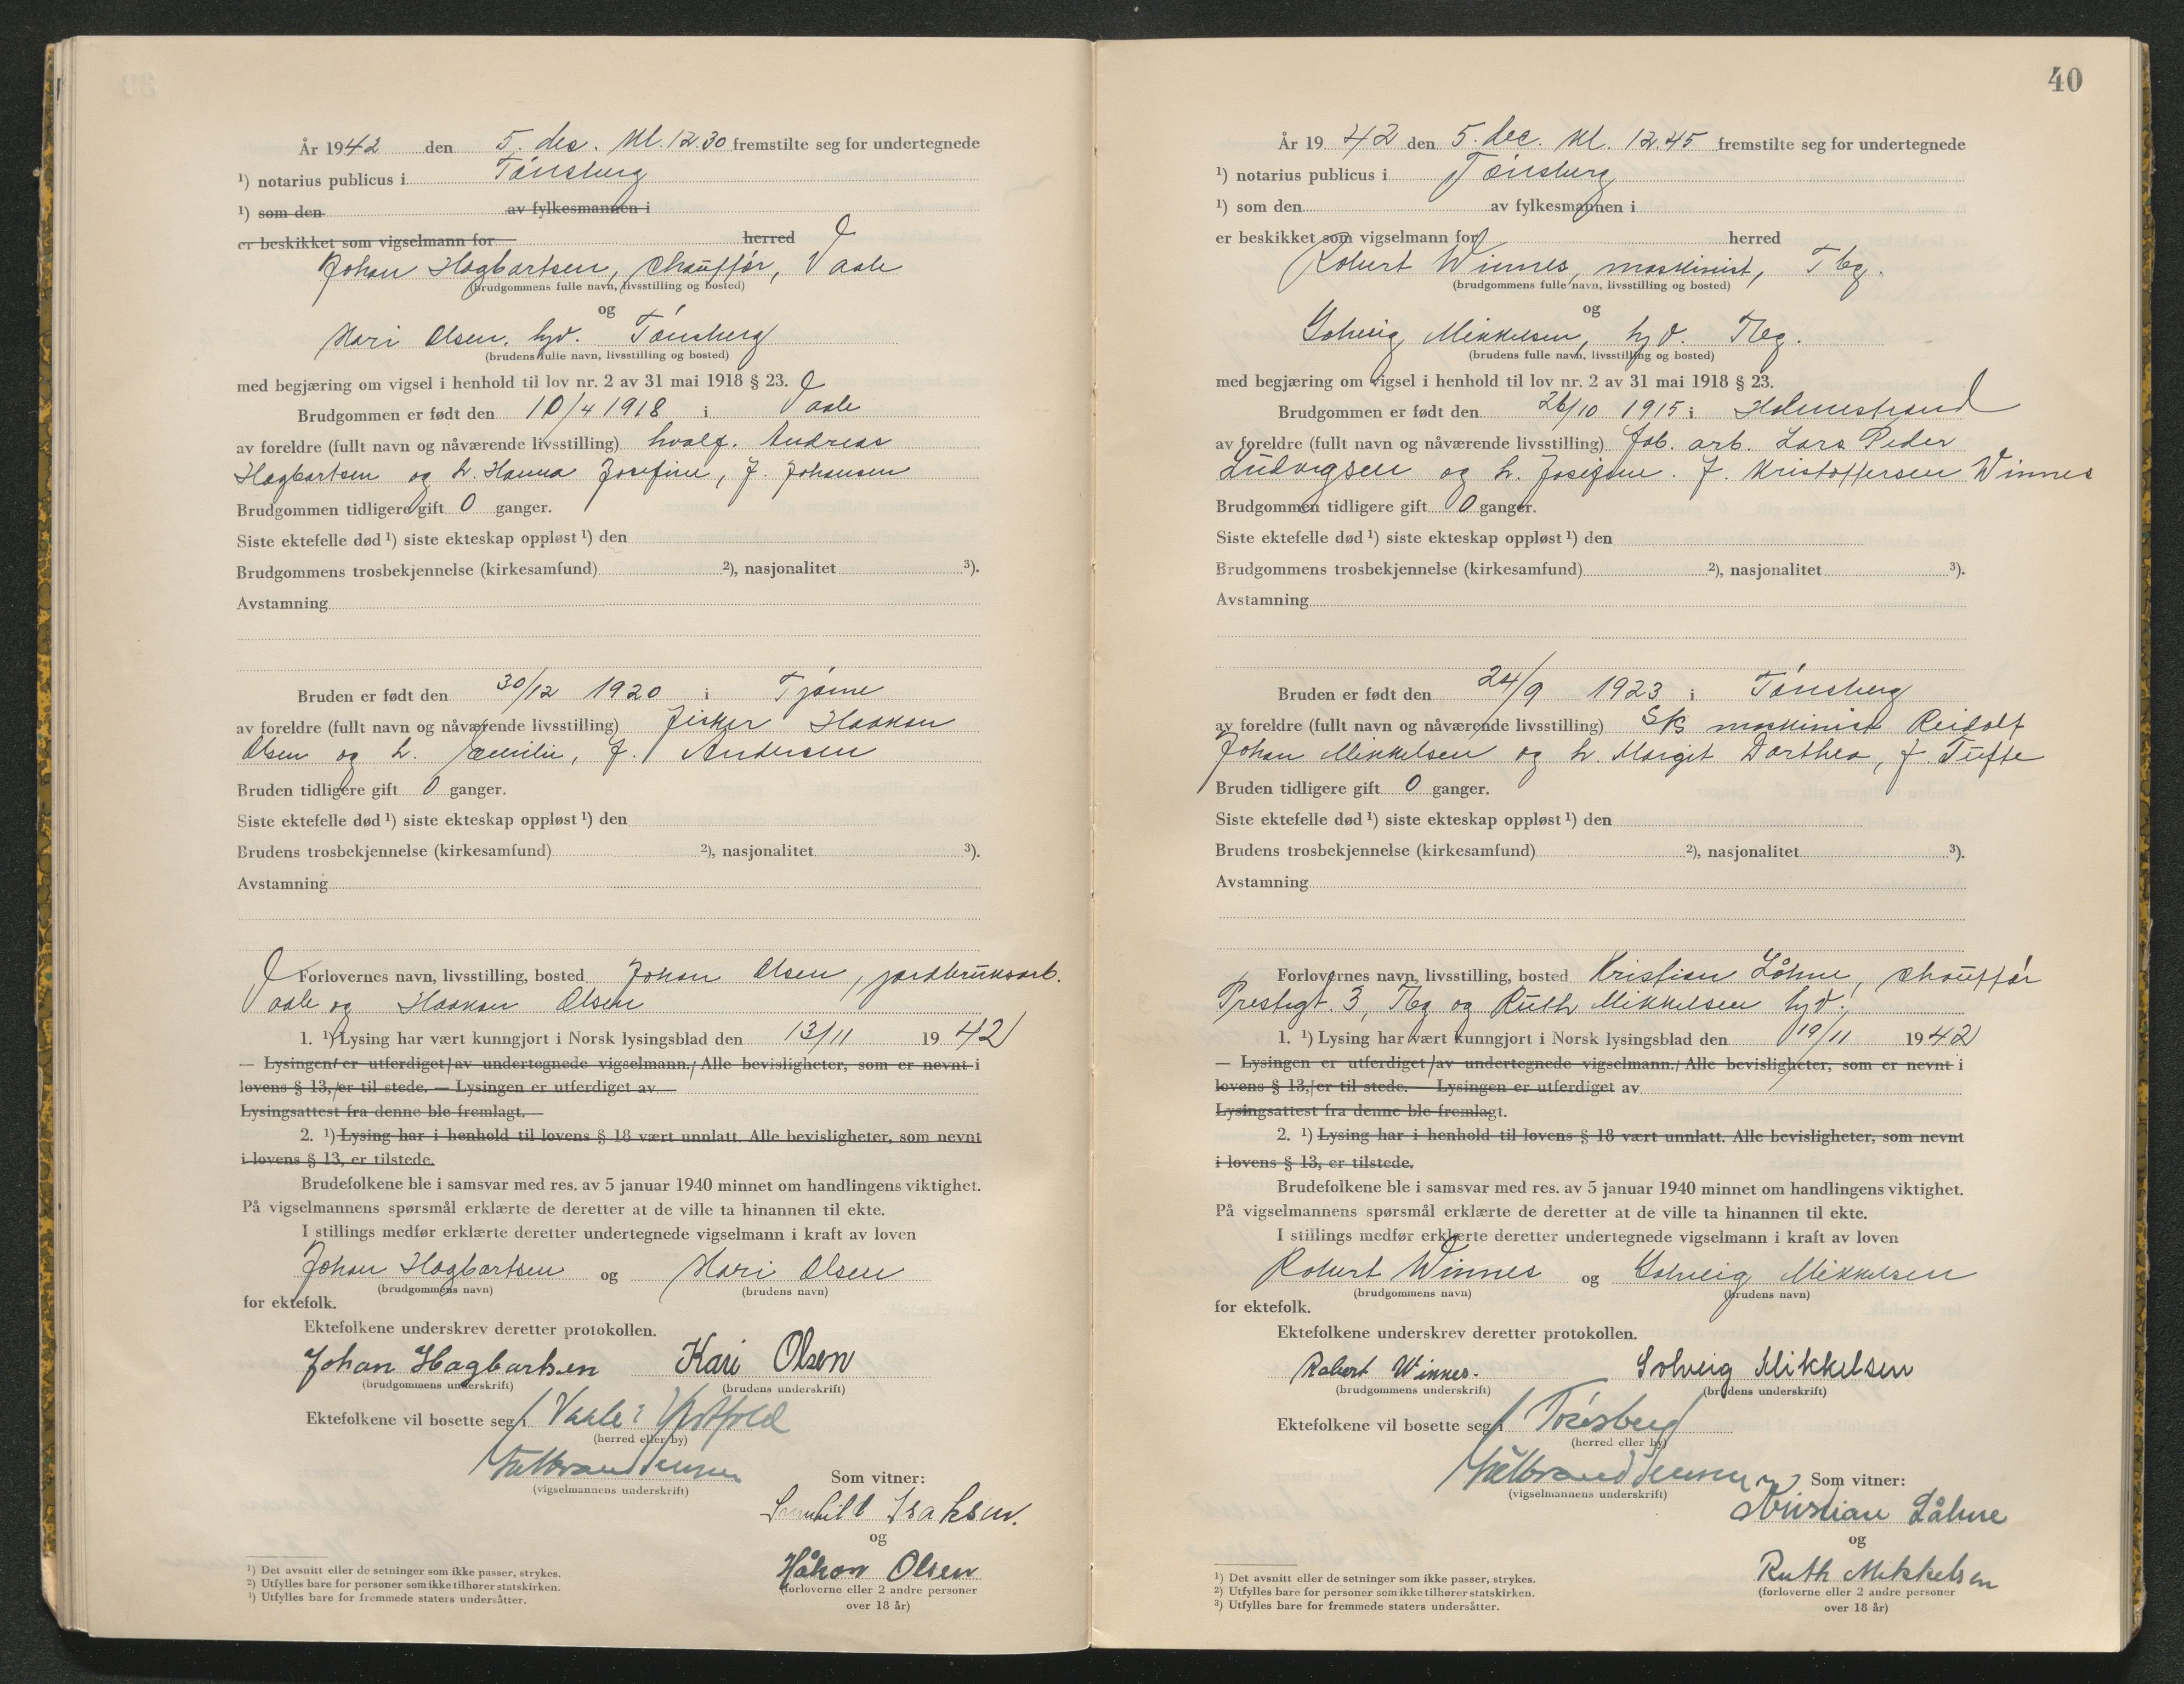 År 1942 den 5. des. kl. 12.30 fremstilte seg for undertegnede
¹) notarius publicus i Tönsberg
¹) som den av fylkesmannen i
er beskikket som vigselmann for herred
Johan Hagbartsen, chauffør, Vaale
(brudgommens fulle navn, livsstilling og bosted)
og
Kari Olsen, hyd. Tönsberg
(brudens fulle navn, livsstilling og bosted)
med begjæring om vigsel i henhold til lov nr. 2 av 31 mai 1918 § 23.
Brudgommen er født den 10/4 1918 i Vaale
av foreldre (fullt navn og nåværende livsstilling) hvalf. Andreas
Hagbartsen og h. Hanna Josefine, f. Johansen
Brudgommen tidligere gift 0 ganger.
Siste ektefelle død ¹) siste ekteskap oppløst ¹) den
Brudgommens trosbekjennelse (kirkesamfund) ²), nasjonalitet ³).
Avstamning
Bruden er født den 30/12 1920 i Tjøme
av foreldre (fullt navn og nåværende livsstilling) fisker Haakon
Olsen og h. Emilie, f. Andersen
Bruden tidligere gift 0 ganger.
Siste ektefelle død ¹) siste ekteskap oppløst ¹) den
Brudens trosbekjennelse (kirkesamfund) ²), nasjonalitet ³).
Avstamning
Forlovernes navn, livsstilling, bosted Johan Olsen, jordbruksarb.
Vaale og Haakon Olsen
1. ¹) Lysing har vært kunngjort i Norsk lysingsblad den 13/11 1942
— Lysingen er utferdiget av undertegnede vigselmann. Alle bevisligheter, som er nevnt i
lovens § 13, er til stede. — Lysingen er utferdiget av
Lysingsattest fra denne ble fremlagt.
2. ¹) Lysing har i henhold til lovens § 18 vært unnlatt. Alle bevisligheter, som nevnt
i lovens § 13, er tilstede.
Brudefolkene ble i samsvar med res. av 5 januar 1940 minnet om handlingens viktighet.
På vigselmannens spørsmål erklærte de deretter at de ville ta hinannen til ekte.
I stillings medfør erklærte deretter undertegnede vigselmann i kraft av loven
Johan Hagbartsen og Kari Olsen
(brudgommens navn) (brudens navn)
for ektefolk.
Ektefolkene underskrev deretter protokollen.
Johan Hagbartsen Kari Olsen
(brudgommens underskrift) (brudens underskrift)
Ektefolkene vil bosette seg i Vaale i Vestfold
(herred eller by)
(vigselmannens underskrift)
Som vitner:
Isaksen.
og
Håkon Olsen
(forloverne eller 2 andre personer
over 18 år)
¹) Det avsnitt eller de setninger som ikke passer, strykes.
²) Utfylles bare for personer som ikke tilhører statskirken.
³) Utfylles bare for fremmede staters undersåtter.
40
År 1942 den 5. dec. kl. 12.45 fremstilte seg for undertegnede
¹) notarius publicus i Tönsberg
¹) som den av fylkesmannen i
er beskikket som vigselmann for herred
Robert Winnes, maskinist, Tbg.
(brudgommens fulle navn, livsstilling og bosted)
og
Solveig Mikkelsen, hyd. Tbg.
(brudens fulle navn, livsstilling og bosted)
med begjæring om vigsel i henhold til lov nr. 2 av 31 mai 1918 § 23.
Brudgommen er født den 26/10 1915 i Holmestrand
av foreldre (fullt navn og nåværende livsstilling) fab. arb. Lars Peder
Ludvigsen og h. Josefine. f. Kristoffersen Winnes
Brudgommen tidligere gift 0 ganger.
Siste ektefelle død ¹) siste ekteskap oppløst ¹) den
Brudgommens trosbekjennelse (kirkesamfund) ²), nasjonalitet ³).
Avstamning
Bruden er født den 24/9 1923 i Tönsberg
av foreldre (fullt navn og nåværende livsstilling) sks maskinist Reidolf
Johan Mikkelsen og h. Margit Dorthea, f. Tufte
Bruden tidligere gift 0 ganger.
Siste ektefelle død ¹) siste ekteskap oppløst ¹) den
Brudens trosbekjennelse (kirkesamfund) ²), nasjonalitet ³).
Avstamning
Forlovernes navn, livsstilling, bosted Kristian Låhne, chauffør
Prestegt. 3, Tbg og Ruth Mikkelsen hyd.
1. ¹) Lysing har vært kunngjort i Norsk lysingsblad den 19/11 1942
— Lysingen er utferdiget av undertegnede vigselmann. Alle bevisligheter, som er nevnt i
lovens § 13, er til stede. — Lysingen er utferdiget av
Lysingsattest fra denne ble fremlagt.
2. ¹) Lysing har i henhold til lovens § 18 vært unnlatt. Alle bevisligheter, som nevnt
i lovens § 13, er tilstede.
Brudefolkene ble i samsvar med res. av 5 januar 1940 minnet om handlingens viktighet.
På vigselmannens spørsmål erklærte de deretter at de ville ta hinannen til ekte.
I stillings medfør erklærte deretter undertegnede vigselmann i kraft av loven
Robert Winnes og Solveig Mikkelsen
(brudgommens navn) (brudens navn)
for ektefolk.
Ektefolkene underskrev deretter protokollen.
Robert Winnes. Solveig Mikkelsen
(brudgommens underskrift) (brudens underskrift)
Ektefolkene vil bosette seg i Tönsberg
(herred eller by)
(vigselmannens underskrift)
Som vitner:
Kristian Låhne
og
Ruth Mikkelsen
(forloverne eller 2 andre personer
over 18 år)
¹) Det avsnitt eller de setninger som ikke passer, strykes.
²) Utfylles bare for personer som ikke tilhører statskirken.
³) Utfylles bare for fremmede staters undersåtter.